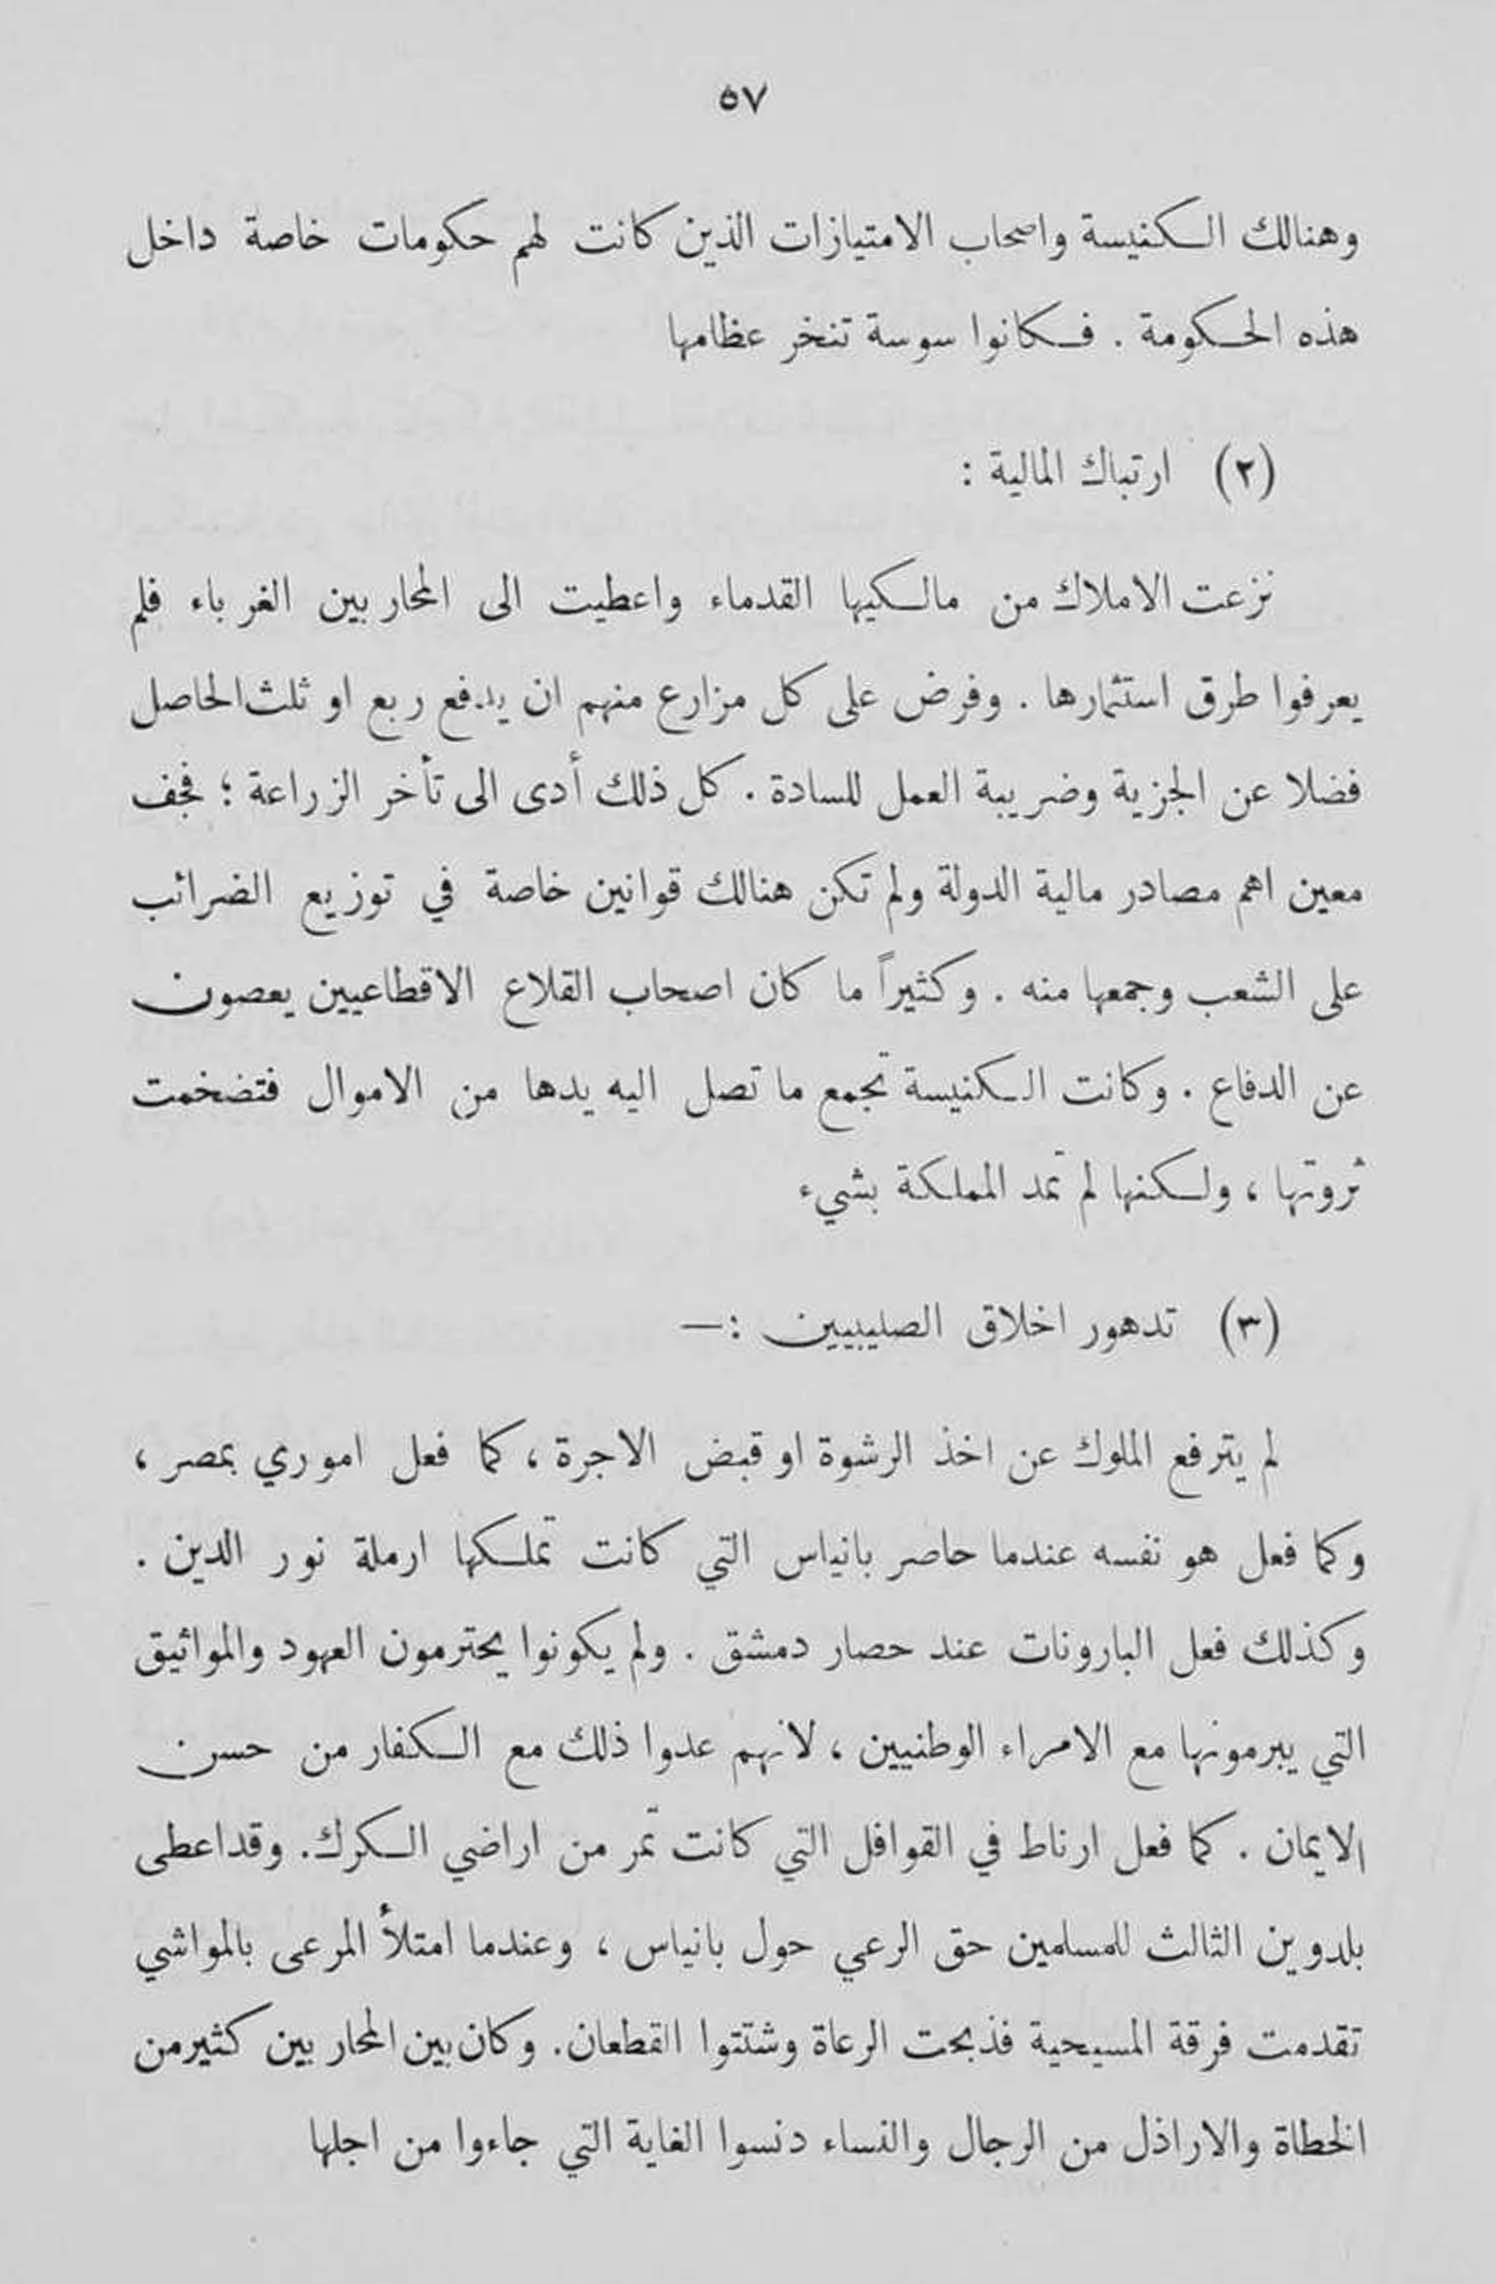 ٥٧
وهنالك الكنيسة واصحاب الامتيازات الذين كانت لهم حكومات خاصة داخل
هذه الحكومة . فكانوا سوسة تنخر عظامها
(٢) ارتباك المالية :
نزعت الاملاك من مالكيها القدماء واعطيت الى المحاربين الغرباء فلم
يعرفوا طرق استثمارها . وفرض على كل مزارع منهم ان يدفع ربع او ثلث الحاصل
فضلا عن الجزية وضريبة العمل للسادة . كل ذلك أدى الى تأخر الزراعة ؛ فجف
معين اهم مصادر مالية الدولة ولم تكن هنالك قوانين خاصة في توزيع الضرائب
على الشعب وجمعها منه . وكثيراً ما كان اصحاب القلاع الاقطاعيين يعصون
عن الدفاع . وكانت الكنيسة تجمع ما تصل اليه يدها من الاموال فتضخمت
ثروتها ، ولكنها لم تمد المملكة بشيء
(٣) تدهور اخلاق الصليبيين :—
لم يترفع الملوك عن اخذ الرشوة او قبض الاجرة ، كما فعل اموري بمصر ،
وكما فعل هو نفسه عندما حاصر بانياس التي كانت تملكها ارملة نور الدين .
وكذلك فعل البارونات عند حصار دمشق . ولم يكونوا يحترمون العهود والمواثيق
التي يبرمونها مع الامراء الوطنيين ، لانهم عدوا ذلك مع الكفار من حسن
الايمان . كما فعل ارناط في القوافل التي كانت تمر من اراضي الكرك. وقد اعطى
بلدوين الثالث للمسلمين حق الرعي حول بانياس ، وعندما امتلأ المرعى بالمواشي
تقدمت فرقة المسيحية فذبحت الرعاة وشتتوا القطعان. وكان بين المحاربين كثير من
الخطاة والاراذل من الرجال والنساء دنسوا الغاية التي جاءوا من اجلها